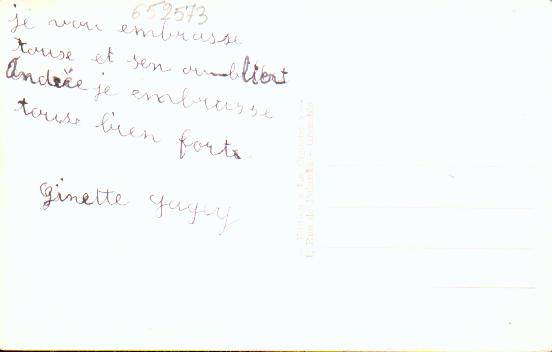 652573
je vou embrasse
touse et sen oublient
Andrée je embrasse
touse bien forts
ginette gagey